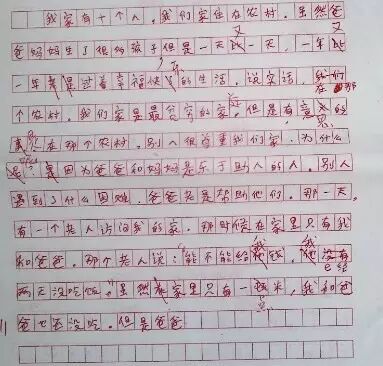 我家有十个人。我们家住在农村。虽然爸
爸妈妈生了很多孩子但是一天又一天，一年又
一年都是过着幸福快乐的生活。说实话，我们在那
个农村，我们家是最贫穷的家庭。但是有意思的
是在那个农村，别人很尊重我们家。为什么
呢？是因为爸爸和妈妈是乐于助人的人。别人
遇到了什么困难，爸爸老是帮助他们。那一天，
有一个老人访问我的家。那时候在家里只有我
和爸爸。那个老人说：“能不能给我钱，我没有
两天没吃饭。”虽然家里只有一点米，我和爸
爸也还没吃。但是爸爸